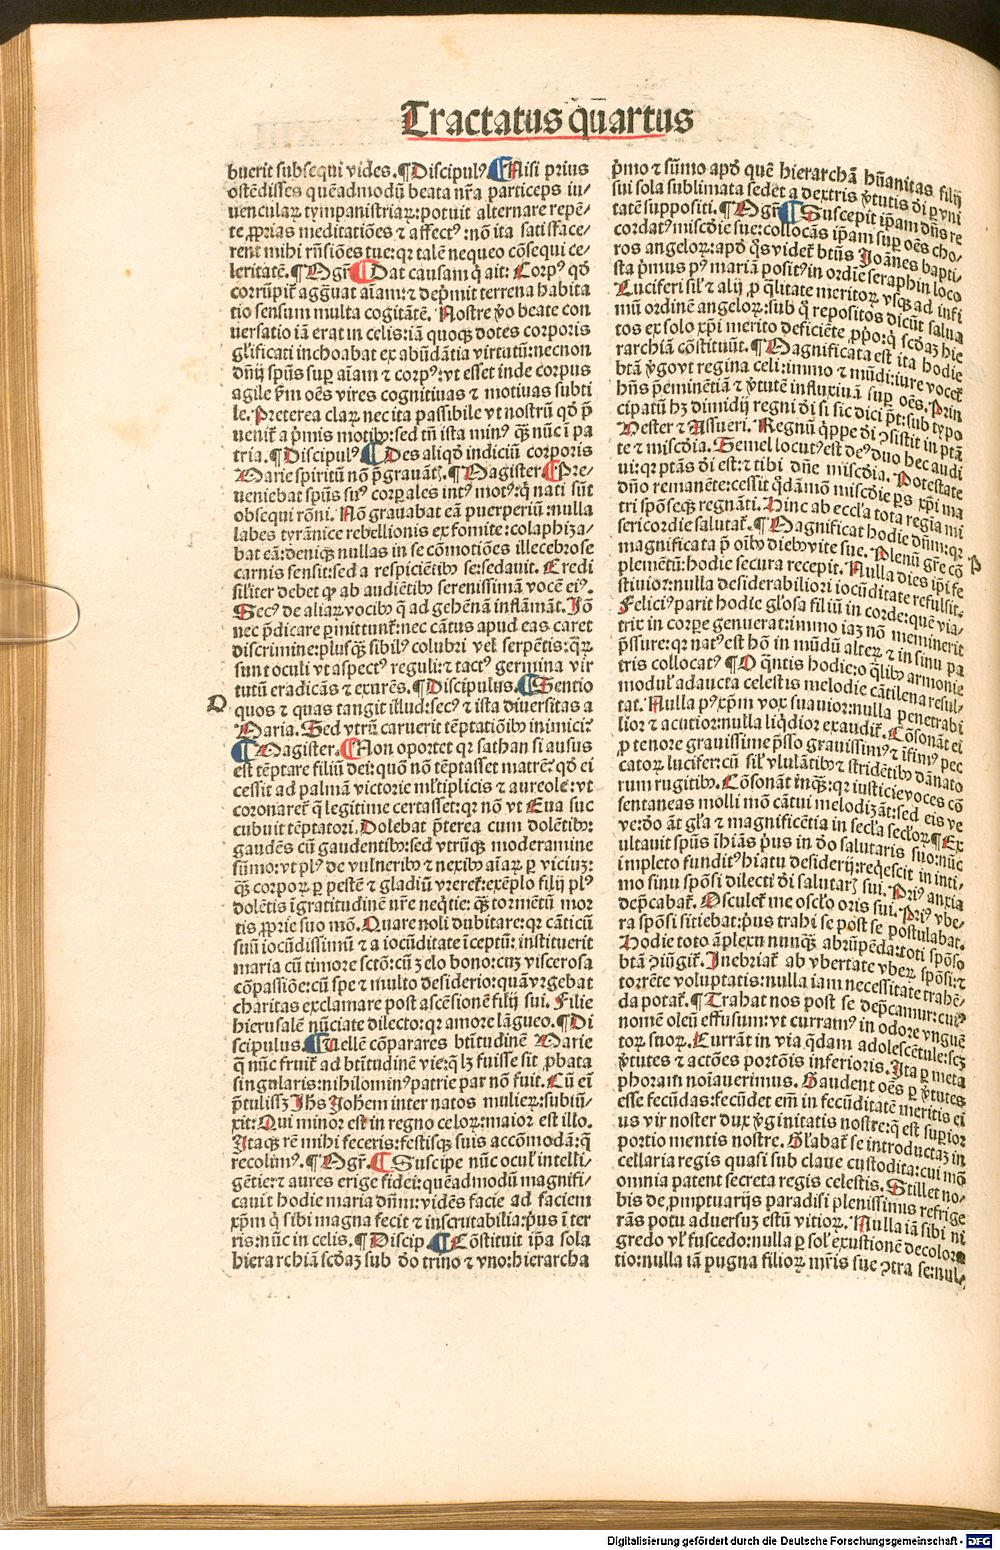 Tractatus qũartus
buerit subsequi vides. ¶Discipulꝰ ¶Nisi prius
ostẽdisses quẽadmodũ beata nr̃a particeps iu⸗
uenculaꝝ tympanistriaꝝ: potuit alternare repẽ⸗
te ꝓprias meditatiões ⁊ affectꝰ: nõ ita satisface⸗
rent mihi rñsiões tue: qꝛ talẽ nequeo cõsequi ce⸗
leritatẽ. ¶Mgr̃ ¶Dat causam q̇ ait: Corpꝰ qď
corrũpit᷑ agg̃uat aĩam: ⁊ dep̃mit terrena habita
tio sensum multa cogitãtẽ. Nostre ꝟo beate con
uersatio iã erat in celis: iã quoqꝫ dotes corporis
gľificati inchoabat ex abũdãtia virtutũ: necnon
dñij spũs suꝑ aĩam ⁊ corpꝰ: vt esset inde corpus
agile ẜm oẽs vires cognitiuas ⁊ motiuas subti
le. Preterea claꝝ nec ita passibile vt nostrũ qď p̃
uenit᷑ a p̃mis motibꝰ: sed tñ ista minꝰ qꝫ nũc ĩ pa
tria. ¶Discipulꝰ ¶Des aliqď indiciũ corporis
Marie spiritũ nõ p̃grauãtꝭ. ¶Magister ¶Pre⸗
ueniebat spũs suꝰ corꝑales intꝰ motꝰ: q̇ nati sũt
obsequi rõni. Nõ grauabat eã puerperiũ: nulla
labes tyrãnice rebellionis ex fomite: colaphiza⸗
bat eã: deniqꝫ nullas in se cõmotiões illecebrose
carnis sensit: sed a respiciẽtibꝰ se: sedauit. Credi
siľiter debet ꝙ ab audiẽtibꝰ serenissimã vocẽ eiꝰ.
Secꝰ de aliaꝝ vocibꝰ q̃ ad gehẽnã inflãmãt. Jõ
nec p̃dicare ꝑmittunt᷑: nec cãtus apud eas caret
discrimine: plusqꝫ sibilꝰ colubri vel serpẽtis: qꝝ
sunt oculi vt aspectꝰ reguli: ⁊ tactꝰ germina vir
tutũ eradicãs ⁊ exurẽs. ¶Discipulus. ¶Sentio
quos ⁊ quas tangit illud: secꝰ ⁊ ista diuersitas a
Maria. Sed vtrũ caruerit tẽptatiõibꝰ inimici?
¶Magister. ¶Non oportet qꝛ sathan si ausus
est tẽptare filiũ dei: quõ nõ tẽptasset matrẽ? qď ei
cessit ad palmã victorie mľtiplicis ⁊ aureole: vt
coronaret᷑ q̃ legitime certasset: qꝛ nõ vt Eua suc
cubuit tẽptatori. Dolebat p̃terea cum dolẽtibꝰ:
gaudẽs cũ gaudentibꝰ: sed vtrũqꝫ moderamine
sũmo: vt plꝰ de vulneribꝰ ⁊ nexibꝰ aĩaꝝ ꝑ viciuꝫ:
qꝫ corpoꝝ ꝑ pestẽ ⁊ gladiũ vreret᷑: exẽplo filij plꝰ
dolẽtis ĩgratitudinẽ nr̃e neq̇tie: qꝫ tormẽtũ mor
tis ꝓprie suo mõ. Quare noli dubitare: qꝛ cãticũ
suũ iocũdissimũ ⁊ a iocũditate ĩceptũ: instituerit
maria cũ timore sctõ: cũ zelo bono: cuꝫ viscerosa
cõpassiõe: cũ spe ⁊ multo desiderio: quã vrgebat
charitas exclamare post ascẽsionẽ filij sui. Filie
hierusalẽ nũciate dilecto: qꝛ amore lãgueo. ¶Di
scipulus. ¶Uellẽ cõparares btĩtudinẽ Marie
q̃ nũc fruit᷑ ad btĩtudinẽ vie: q̃ lꝫ fuisse sit ꝓbata
singularis: nihilominꝰ patrie par nõ fuit. Cũ eĩ
p̃tulissꝫ Jhs Johem inter natos mulieꝝ: subiũ⸗
xit: Qui minor est in regno celoꝝ: maior est illo.
Itaqꝫ rẽ mihi feceris: festisqꝫ suis accõmodã: q̃
recolimꝰ. ¶Mgr̃. ¶Suscipe nũc ocuľ intelli⸗
gẽtie: ⁊ aures erige fidei: quẽadmodũ magnifi⸗
cauit hodie maria dñm: vidẽs facie ad faciem
xp̃m q̇ sibi magna fecit ⁊ inscrutabilia: p̃us ĩ ter
ris: nũc in celis. ¶Discip. ¶Cõstituit ip̃a sola
hierarchiã scďaꝫ sub ďo trino ⁊ vno: hierarcha
D
p̃mo ⁊ sũmo apď quẽ hierarchã hũanitas filij
sui sola sublimata sedet a dextris ꝟtutis di ꝑ vni
tatẽ suppositi. ¶Mgr̃ ¶Suscepit ip̃am dñs re
cordatꝰ miscďie sue: collocãs ip̃am suꝑ oẽs cho⸗
ros angeloꝝ: apď q̊s videt᷑ btũs Joãnes bapti⸗
sta p̃mus pꝰ mariã positꝰ in ordine seraphin loco
Luciferi siľ ⁊ alij ꝓ q̃litate meritoꝝ vsqꝫ ad infi
mũ ordinẽ angeloꝝ: sub q̊ repositos dicũt salua
tos ex solo xp̃i merito deficiẽte ꝓprio: q̇ scďaꝫ hie
rarchiã cõstituũt. ¶Magnificata est ita hodie
btã ꝟgo vt regina celi: immo ⁊ mũdi: iure vocet᷑
hñs p̃eminẽtiã ⁊ ꝟtutẽ influxiuã suꝑ oẽs. Prin
cipatũ hꝫ dimidij regni di si sic dici p̃t: sub typo
Hester ⁊ Assueri. Regnũ q̇ppe di ꝯsistit in ptã
te ⁊ miscďia. Semel locutꝰ est deꝰ: duo hec audi
ui: qꝛ ptãs di est: ⁊ tibi dñe miscďia. Potestate
dño remanẽte: cessit q̇dãmõ miscďie ꝑs xp̃i ma
tri spõseqꝫ regnãti. Hinc ab eccľa tota regia mi
sericordie salutat᷑. ¶Magnificat hodie dñm: qꝛ
magnificata p̃ oĩbꝰ diebꝰ vite sue. Plenũ gr̃e cõ
plemẽtũ: hodie secura recepit. Nulla dies ip̃i fe
stiuior: nulla desiderabiliori iocũditate refulsit.
Feliciꝰ parit hodie gľosa filiũ in corde: quẽ via⸗
trix in corꝑe genuerat: immo iaꝫ nõ meminerit
p̃ssure: qꝛ natꝰ est hõ in mũdũ alteꝝ ⁊ in sinu pa
tris collocatꝰ ¶O q̇ntis hodie: o q̃libꝰ armonie
moduľ adaucta celestis melodie cãtilena resul⸗
tat. Nulla pꝰ xp̃m vox suauior: nulla penetrabi
lior ⁊ acutior: nulla liq̇dior exaudit᷑. Cõsonãt ei
ꝓ tenore grauissime p̃sso grauissimꝰ ⁊ ĩfimꝰ pec
catoꝝ lucifer: cũ siľ vlulãtibꝰ ⁊ stridẽtibꝰ dãnato
rum rugitibꝰ. Cõsonãt inqꝫ: qꝛ iusticie voces cõ
sentaneas molli mõ cãtui melodizãt: sed eis ve
ve: ďo ãt gľa ⁊ magnificẽtia in secľa secľoꝝ ¶Ex
ultauit spũs ĩhiãs p̃us in ďo salutaris suo: nũc
impleto funditꝰ hiatu desiderij: req̇escit in inti⸗
mo sinu spõsi dilecti di salutarꝭ sui. Priꝰ anxia
dep̃cabat᷑. Osculet᷑ me oscľo oris sui. Priꝰ vbe⸗
ra spõsi sitiebat: p̃us trahi se post se postulabat.
Hodie toto ãplexu nunqꝫ abrũpẽda: toti spõso
btã ꝯiũgit᷑. Inebriat᷑ ab vbertate vbeꝝ spõsi: ⁊
torrẽte voluptatis: nulla iam necessitate trahẽ⸗
da potat᷑. ¶Trahat nos post se dep̃camur: cuiꝰ
nomẽ oleũ effusum: vt curramꝰ in odore vnguẽ
toꝝ suoꝝ. Currãt in via q̇dam adolescẽtule: scꝫ
ꝟtutes ⁊ actões portõis inferioris. Ita ꝑ meta
phoram noĩauerimus. Gaudent oẽs ꝑ ꝟtutes
esse fecũdas: fecũdet em̃ in fecũditatẽ meritis ei
us vir noster dux ꝟginitatis nostre: q̇ est suꝑior
portio mentis nostre. Gľabat᷑ se introductaꝫ in
cellaria regis quasi sub claue custodita: cui mõ
omnia patent secreta regis celestis. Stillet no⸗
bis de ꝓmptuarijs paradisi plenissimus refrige
rãs potu aduersuꝫ estũ vitioꝝ. Nulla iã sibi ni
gredo vľ fuscedo: nulla ꝑ soľ exustionẽ decolora
tio: nulla iã pugna filioꝝ mr̃is sue ꝯtra se: nul⸗
P
Digitalisierung gefördert durch die Deutsche Forschungsgemeinschaft - DFG